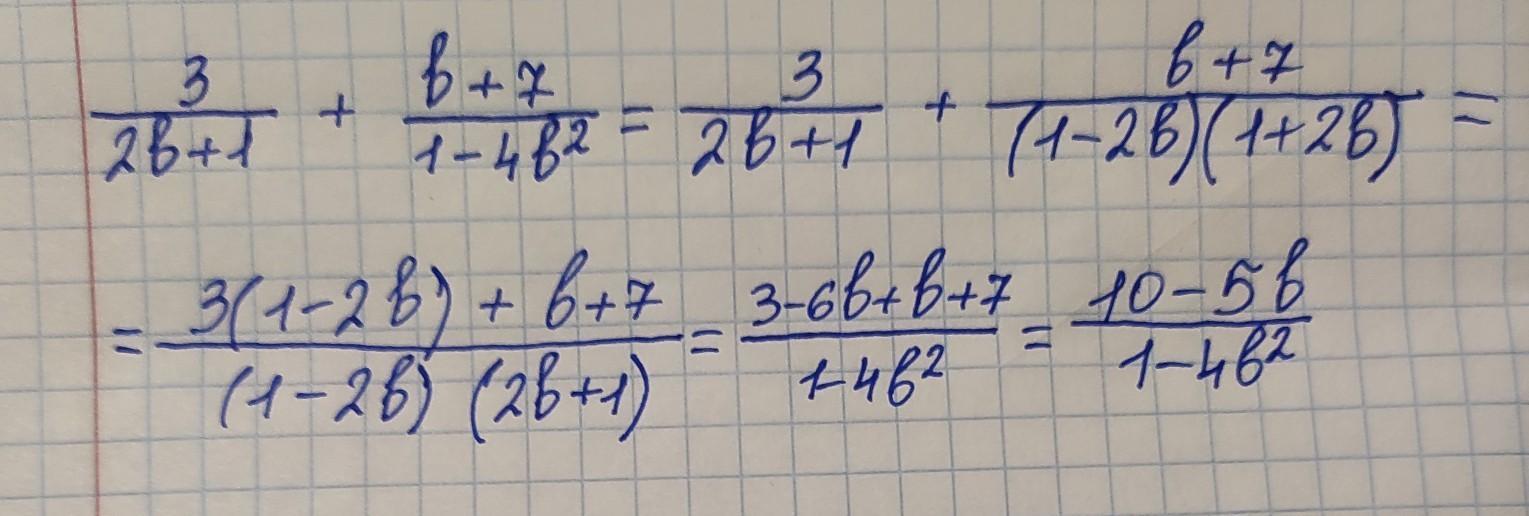 3/(2b+1) + (b+7)/(1-4b²) = 3/(2b+1) + (b+7)/((1-2b)(1+2b)) =
= (3(1-2b) + b+7)/((1-2b)(2b+1)) = (3-6b+b+7)/(1-4b²) = (10-5b)/(1-4b²)